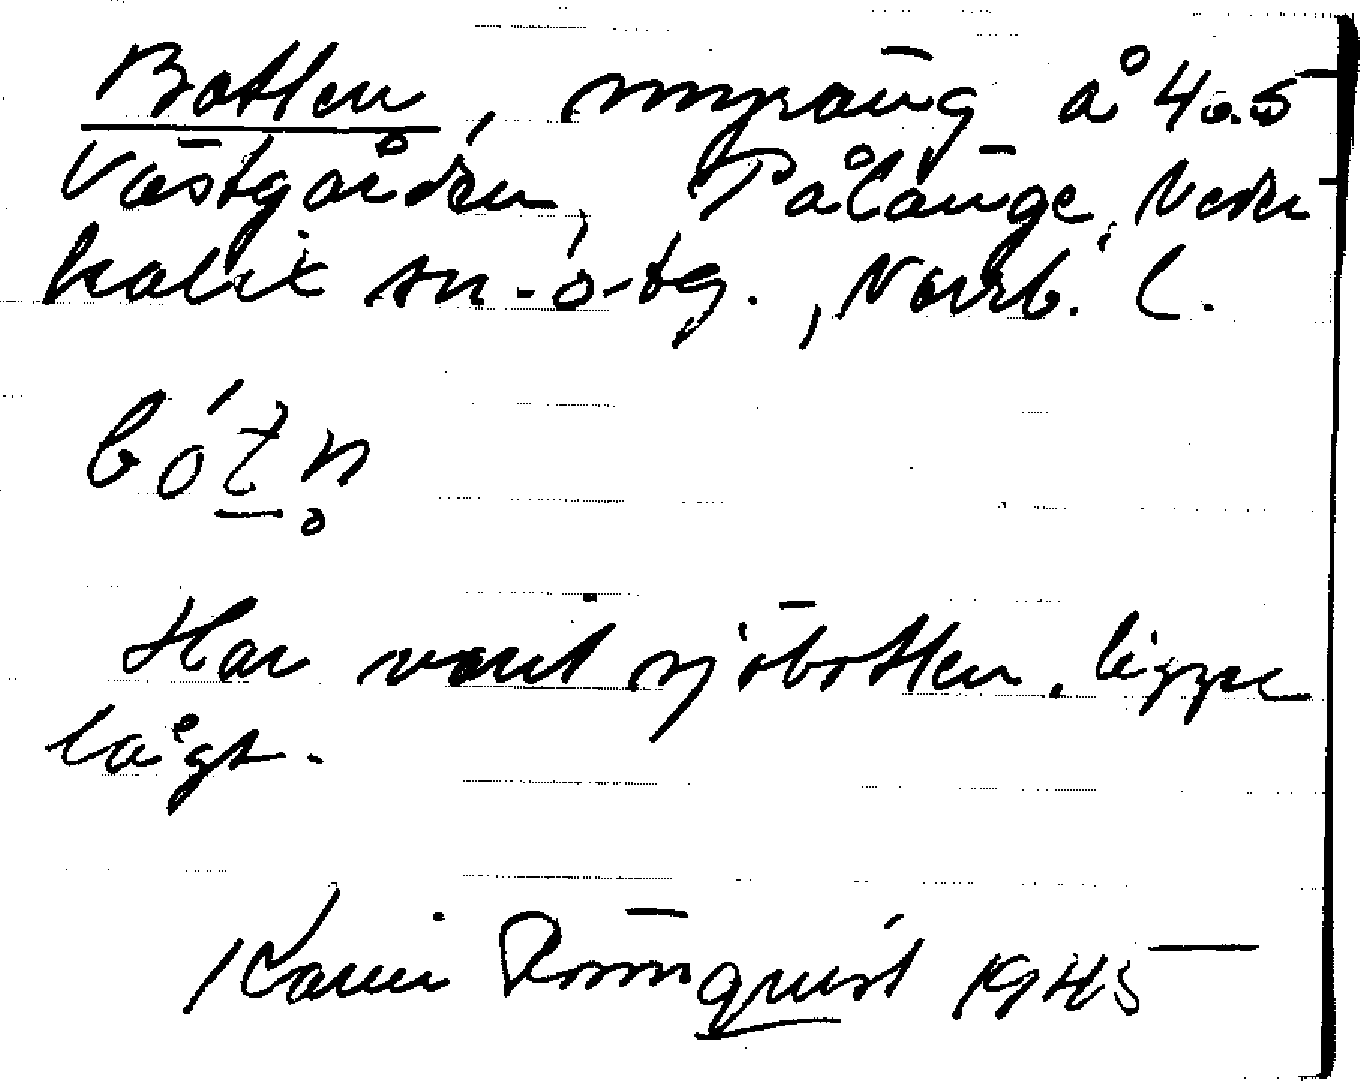 Botten, myräng å 40.5
Västgården, Pålänge, Neder
kalix sn. o. tg., Norrb. l.
bótn̥
Har varit sjöbotten. ligger
lågt.
Karin Rönnquist 1945